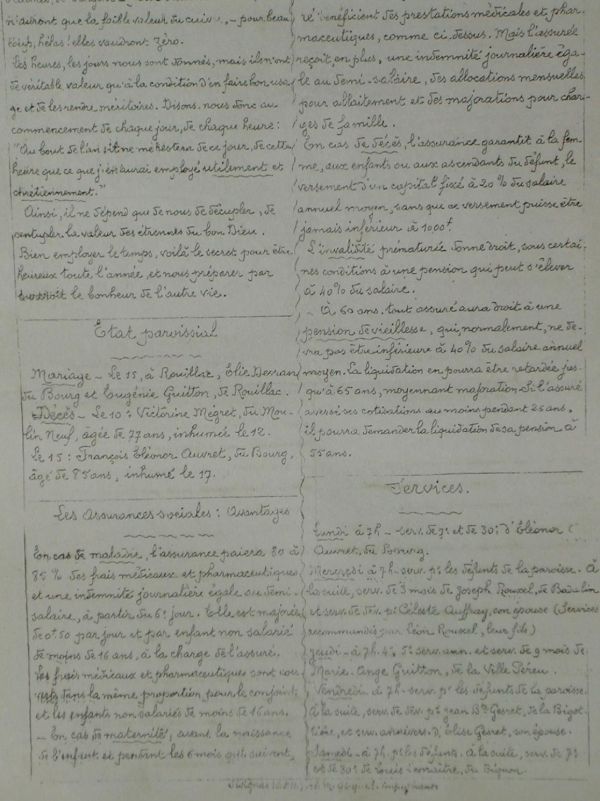 n'auront que la faible valeur du cuivre, - pour beau
coup, hélas! elles vaudront zéro.
Les heures, les jours nous sont donnés, mais ils n'ont
de véritable valeur qu'à la condition d'en faire bon usa
ge et de les rendre méritoires. Disons-nous donc au
commencement de chaque jour, de chaque heure:
"Au bout de l'an il ne me restera de ce jour, de cette
heure que ce que j'en aurai employé utilement et
chrétiennement."
Ainsi, il ne dépend que de nous de décupler, de
centupler la valeur des étrennes du bon Dieu.
Bien employer le temps, voilà le secret pour être
heureux toute l'année, et nous préparer par
le bonheur de l'autre vie.
Etat paroissial
Mariage - Le 15, à Rouillac, Elie
du Bourg et Eugénie Guitton, de Rouillac.
Décès - Le 10: Victorine Mégret, du Mou-
lin Neuf, âgée de 77 ans, inhumée le 12.
Le 15: François Eléonor Auvret, du Bourg,
âgé de 85 ans, inhumé le 17.
Les Assurances sociales: Avantages
En cas de maladie, l'assurance paiera 80 à
85% des frais médicaux et pharmaceutiques
et une indemnité journalière égale au demi-
salaire, à partir du 6e jour. Elle est majorée
de 0f50 par jour et par enfant non salarié
de moins de 16 ans, à la charge de l'assuré.
Les frais médicaux et pharmaceutiques sont cou
verts dans la même proportion pour le conjoint
et les enfants non salariés de moins de 16 ans.
- En cas de maternité, avant la naissance
de l'enfant et pendant les 6 mois qui suivent,
ré bénéficient des prestations médicales et phar
maceutiques, comme ci-dessus. Mais l'assurée
reçoit, en plus, une indemnité journalière éga-
le au demi-salaire, des allocations mensuelles
pour allaitement et des majorations pour char-
ges de famille.
En cas de décès, l'assurance garantit à la fem-
me, aux enfants ou aux ascendants du défunt, le
versement d'un capital fixé à 20% du salaire
annuel moyen, sans que ce versement puisse être
jamais inférieur à 1000f.
L'invalidité prématurée donne droit, sous certai
nes conditions à une pension qui peut s'élever
à 40% du salaire.
- A 60 ans, tout assuré aura droit à une
pension de vieillesse, qui, normalement, ne de-
vra pas être inférieure à 40% du salaire annuel
moyen. La liquidation en pourra être retardée jus
qu'à 65 ans, moyennant majoration. Si l'assuré
a versé ses cotisations au moins pendant 25 ans,
il pourra demander la liquidation de sa pension à
55 ans.
Services.
Lundi à 7h - serv. de 7e et de 30e d'Eléonor
Auvret, du Bourg.
Mercredi à 7h - serv. pr les défunts de la paroisse. A
la suite, serv. de 3 mois de Joseph Rouxel, de
et serv. de dév. pr Céleste Auffray, son épouse (Services
recommandés par Léon Rouxel, leur fils)
Jeudi - à 7h. serv. ann. et serv. de 9 mois de
Marie-Ange Guitton, de la Ville
Vendredi - à 7h - serv. pr les défunts de la paroisse.
A la suite, serv. de dév. pr Jean Bte Gesret, de la Bigot-
tière, et serv. annivers. d'Elise Gesret, son épouse.
Samedi - à 7h. pr les défunts. A la suite, serv. de 7e
et de 30e de Louis Lemaître, du Bignon.